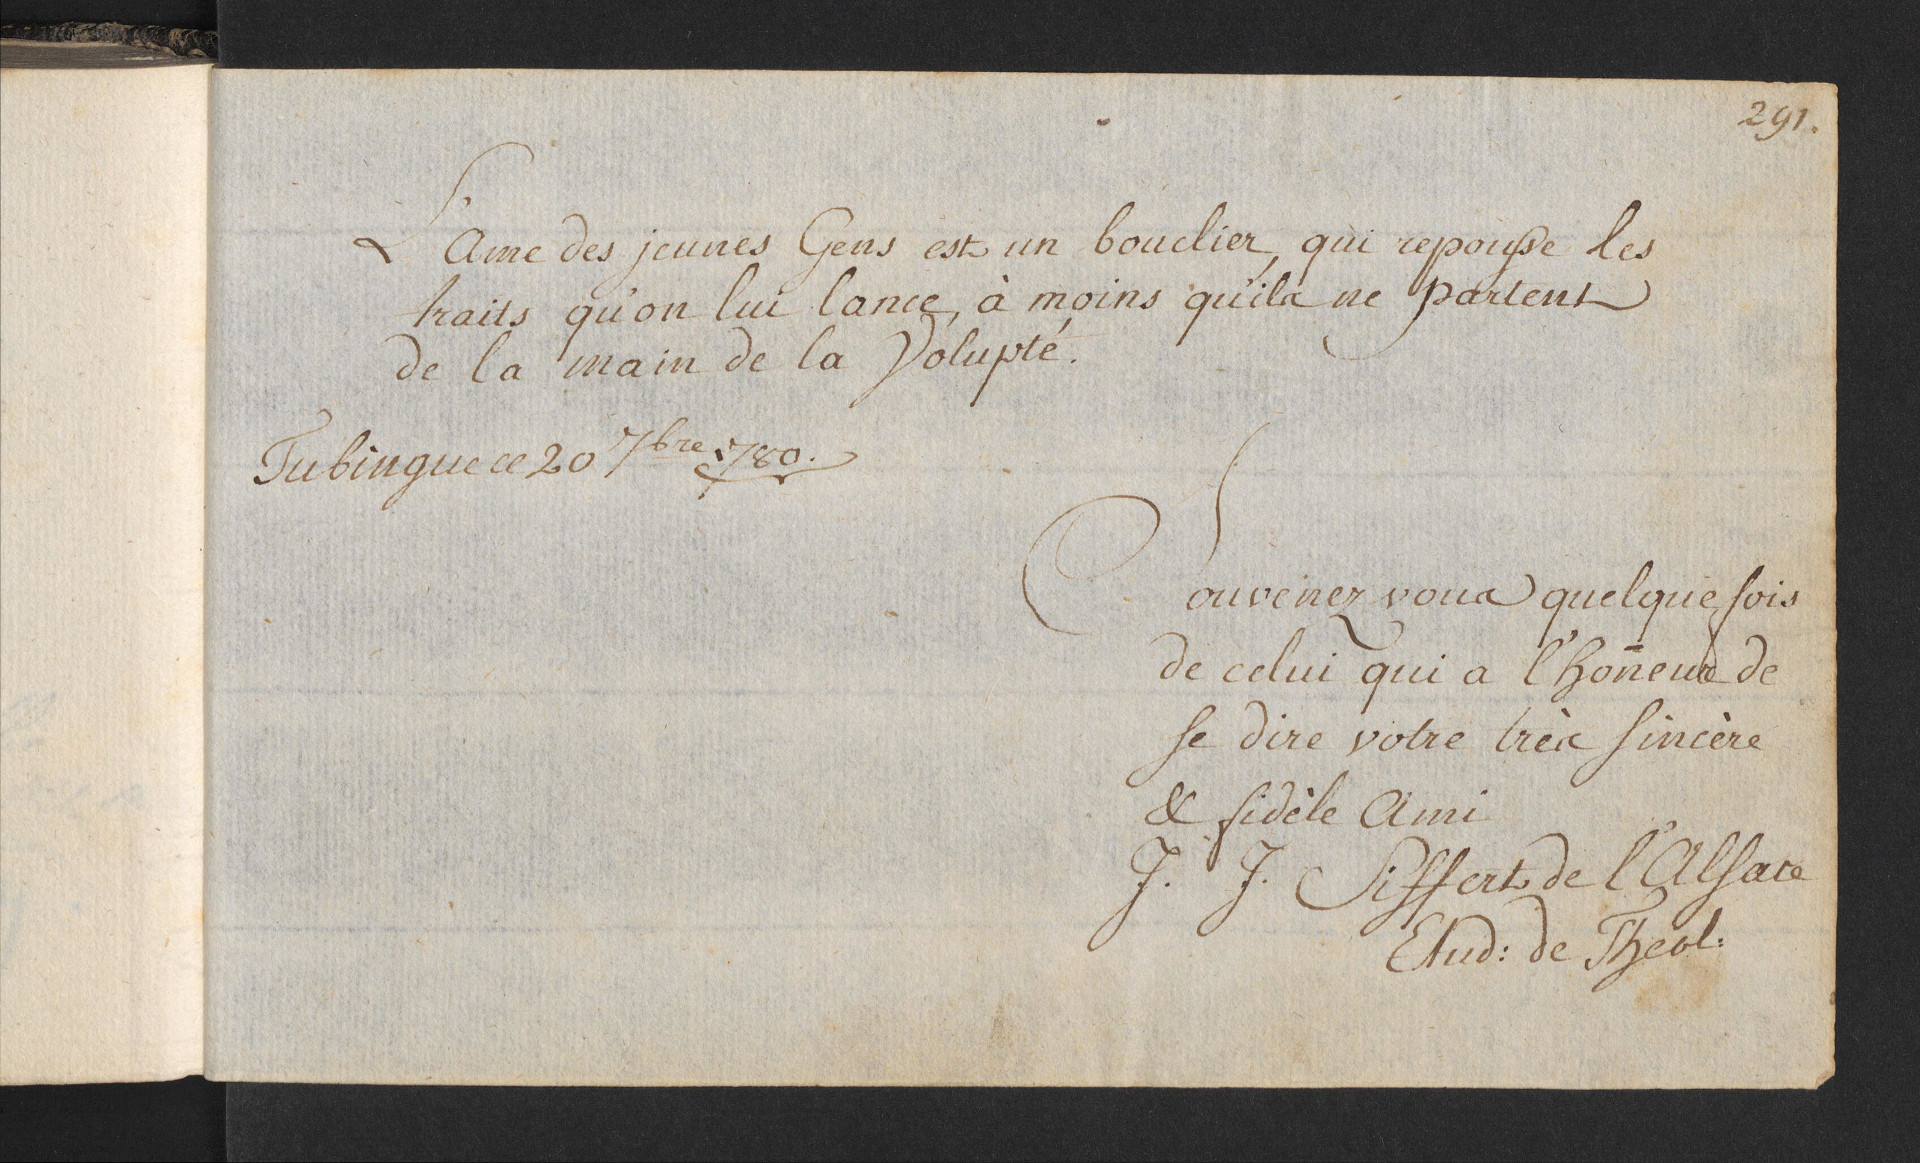 291.
L'Ame des jeunes Gens est un bouclier, qui repousse les
traits qu'on lui lance, à moins qu'ils ne partent
de la main de la Volupté.
Tubingue ce 20 7bre 1780.
Souvenez vous quelque fois
de celui qui a l'hon̄eur de
se dire votre très sincère
& fidèle Ami
J. J. Siffert de l'Alsace
Etud: de Theol: